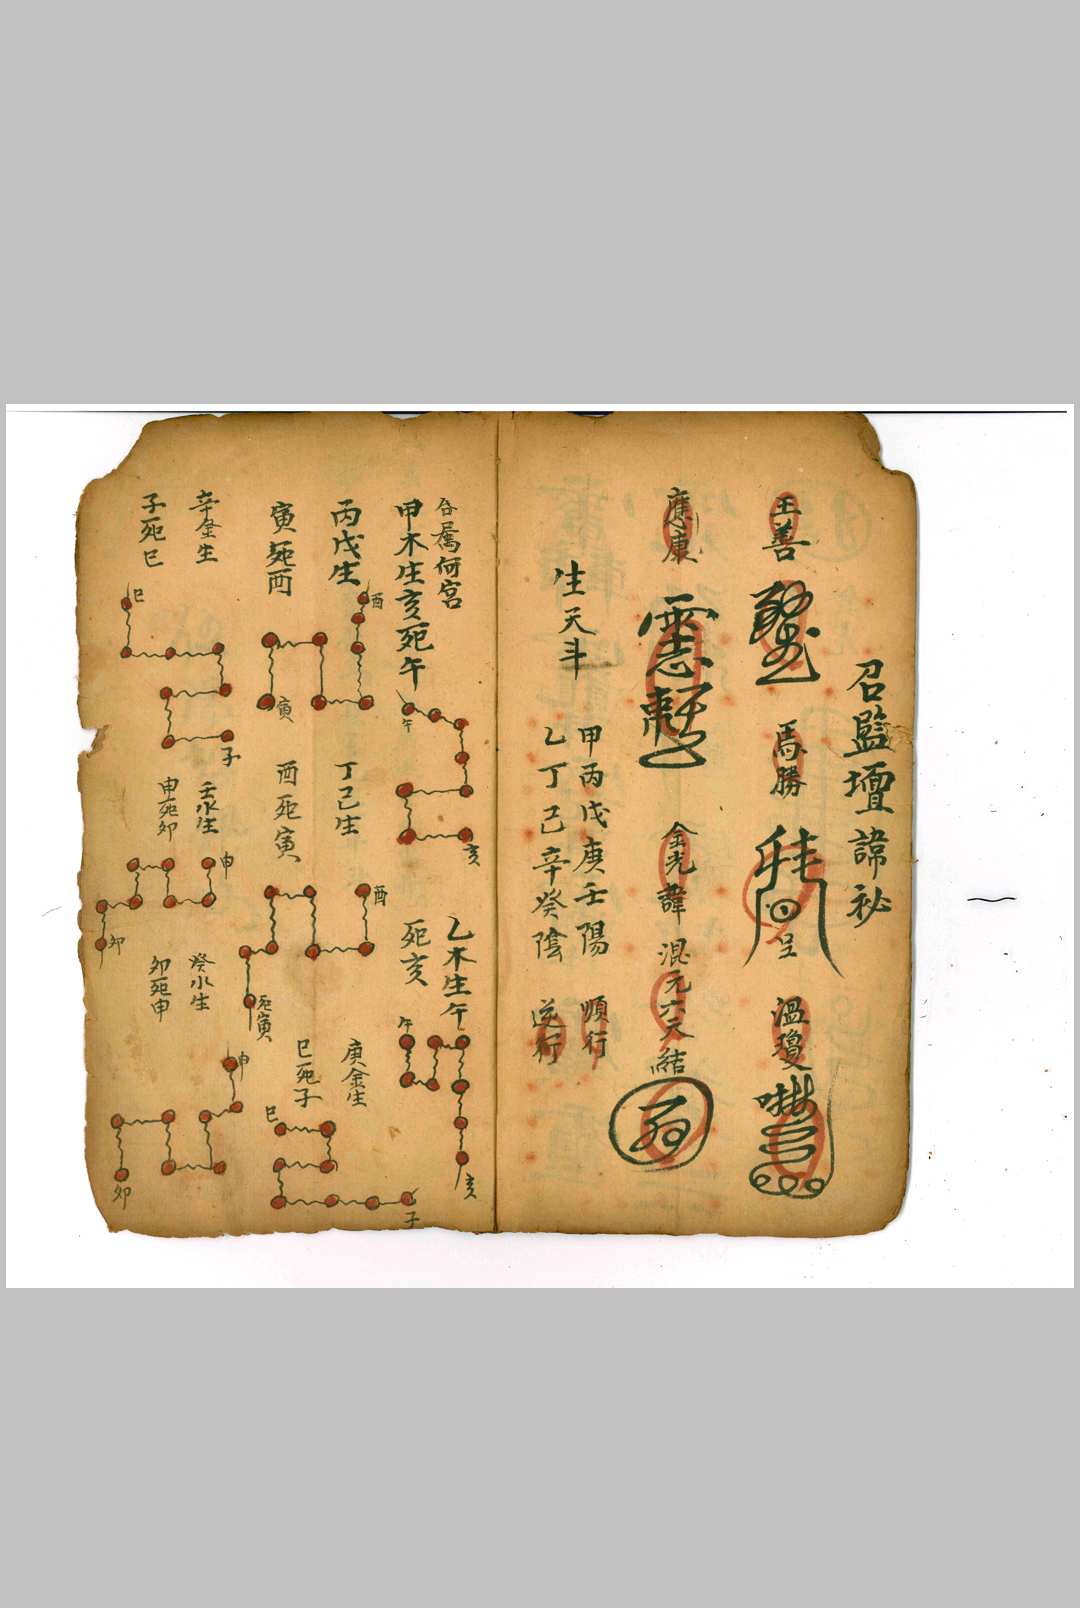 召監壇諱祕
王善
馬勝
温瓊
應康
金光諱
混元六天結
生天斗
甲丙戊庚壬陽 順行
乙丁己辛癸陰 逆行
屬何宮
甲木生亥死午
午
亥
乙木生午
死亥
午
亥
丙戊生
寅死酉
酉
寅
丁己生
酉死寅
酉
死寅
庚金生
巳死子
巳
子
辛金生
子死巳
巳
子
壬水生
申死卯
申
卯
癸水生
卯死申
申
卯